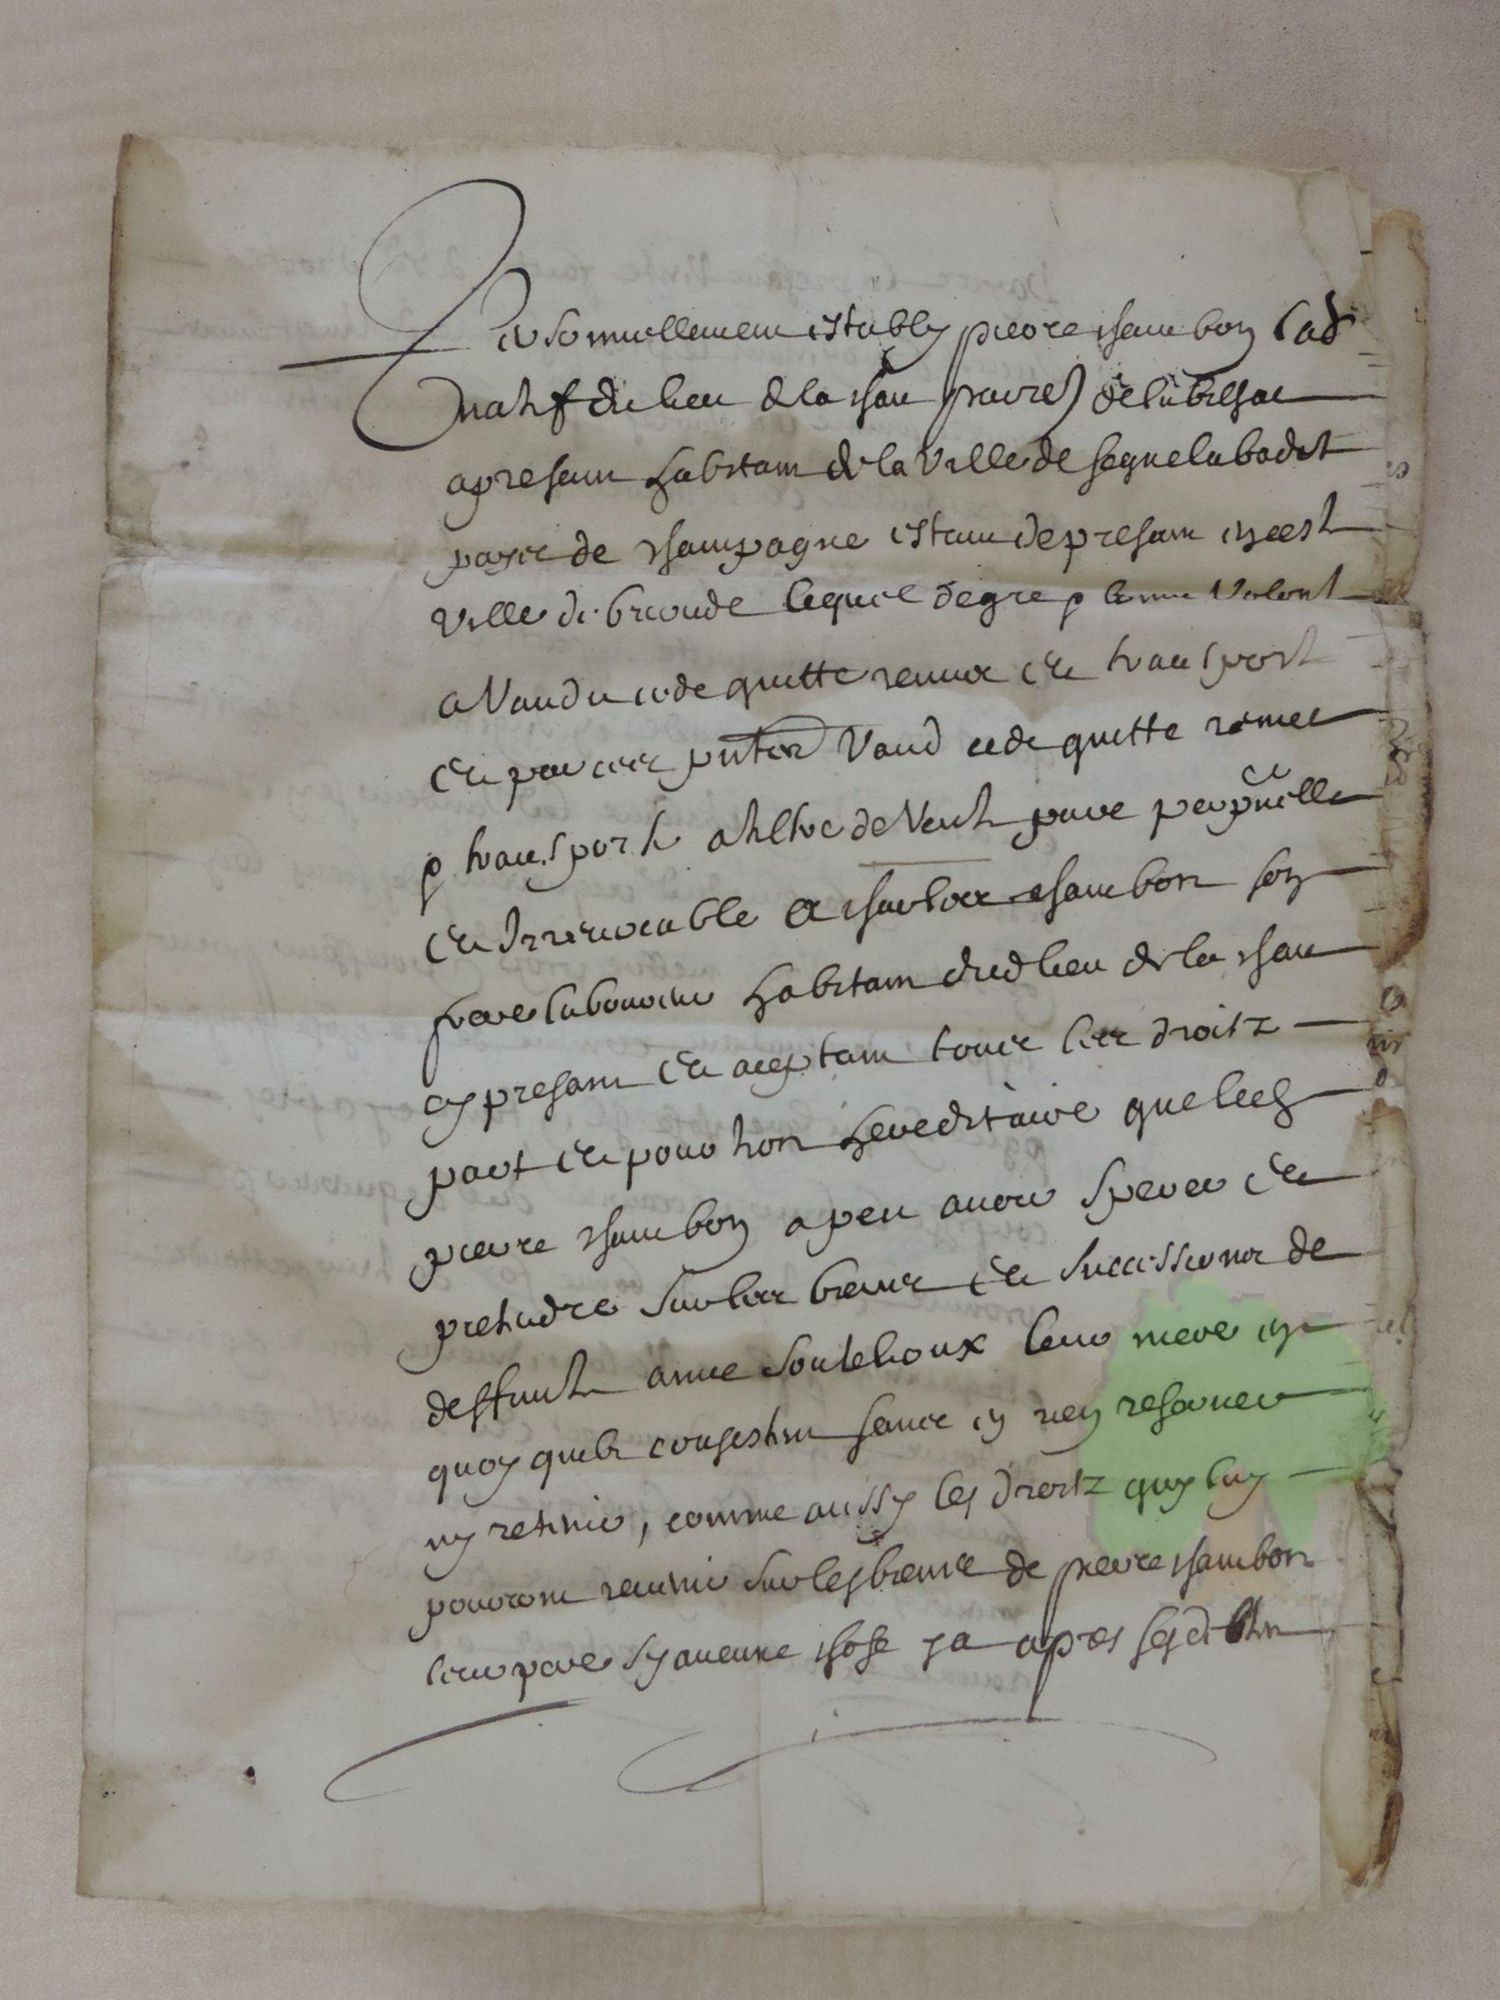 Personnellement estably pierre chambon cad
natif du lieu de la chau parr de lubilhac
apresant habitant de la ville de
pays de champagne estant de presant en cest
ville de brioude lequel de gre p volont
a vandu cede quitte remis et transport
et par ces pntes vand cede quitte remet
p transport a tiltre de vente pure perpetuelle
et irrevocable a chambon son
frere laboureur habitant dud lieu de la chau
cy presant et aceptant tous les droitz
part et portion hereditaire que led
pierre chambon a peu avoir sperer et
pretendre sur les biens et successions de
deffunte anne leur mere en
quoy quilz consistent sans en rien reserver
ny retenir, comme aussy les droitz quy luy
pouront venir sur les biens de pierre chambon
leur pere sy aucune chose y a apres ses